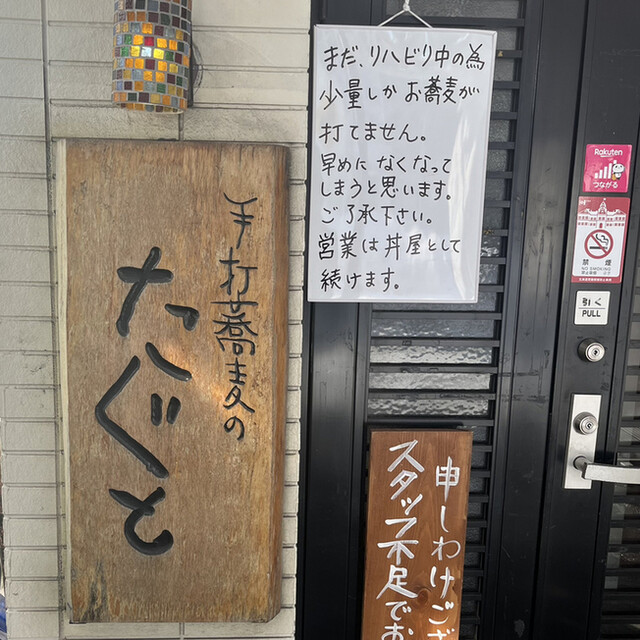 手打蕎麦の
たぐと
まだ、リハビリ中の為
少量しか お蕎麦が
打てません。
早めに なくなって
しまうと思います。
ご了承下さい。
営業は 丼屋として
続けます。
Rakuten
つながる
禁煙
NO SMOKING
引く
PULL
申しわけござ
スタッフ不足でお